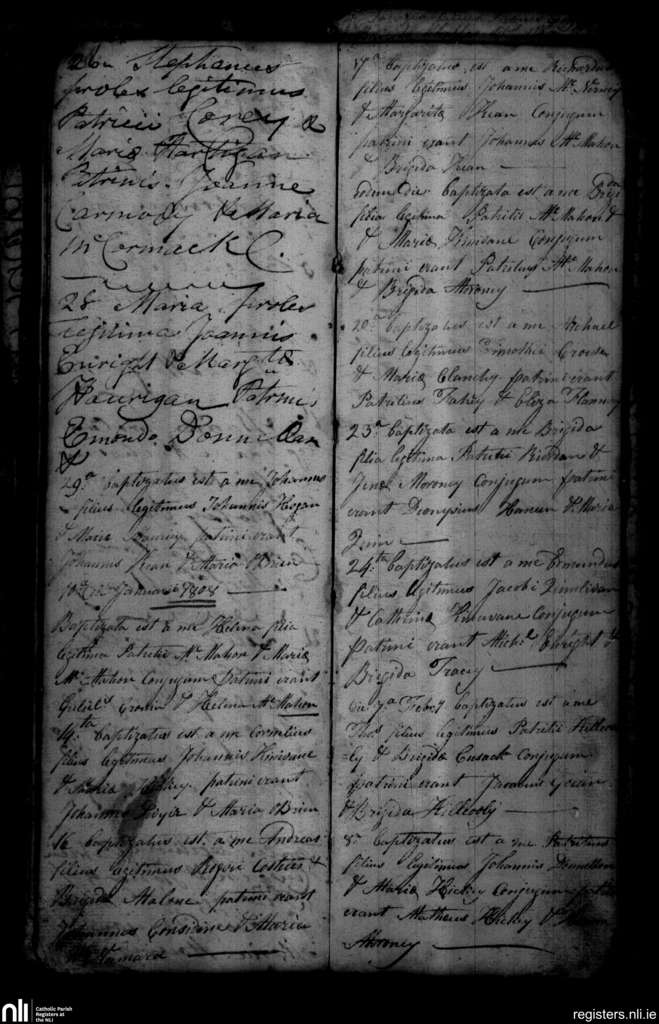 26 Stephanus
proles legitimus
Patricii Coney &
Maria Hartigan
Patrinis Joanne
Carmody & Maria
McCormack C.
28 Maria proles
legitima Joannis
Enright & Margta
Hourigan Patrinis
Edmondo Donnellan
&
29a baptizatus est a me Johannes
filius legitimus Johannis Hogan
& Maria patrini erant
Johannes Kean & Maria OBrien
Januarii 1808
Baptizata est a me Helena filia
legitima Patritii Mc Mahon & Maria
Mc Mahon Conjugum Patrini erant
Cronin & Helena Mc Mahon
14ta baptizatus est a me Cornelius
filius legitimus Johannis Kinivane
& patrini erant
Johannes & Maria OBrien
16 baptizatus est a me Andreas
filius legitimus Costello &
Brigida Malone patrini erant
Johannes Considine & Maria
Mc Namara
17a baptizatus est a me Richardus
filius legitimus Johannis Mc Nerney
& Margarita Kean Conjugum
patrini erant Johannes Mc Mahon
& Brigida Kean
Eodem Die baptizata est a me
filia legitima Patritii Mc Mahon &
& Maria Kinivane Conjugum
patrini erant Patritius Mc Mahon
& Brigida Moroney
20a baptizatus est a me Michael
filius legitimus Timothei Crowe
& Maria Clanchy patrini erant
Patritius Fahey & Eliza Flannery
23a baptizata est a me Brigida
filia legitima Patritii Riordan &
Jena Moroney Conjugum patrini
erant Dionysius Haneen & Maria
Quin
24ta baptizatus est a me Edmundus
filius legitimus Jacobi Quinlivan
& Catherina Kinavane Conjugum
patrini erant Michl Enright &
Brigida Tracey
Die 7a Feby baptizatus est a me
Thos filius legitimus Patritii Killoo
ly & Brigida Cusack Conjugum
patrini erant
& Brigida Killooly
8a baptizatus est a me Patritius
filius legitimus Johannis Donnellan
& Maria Hickey Conjugum patrini
erant Matheus Hickey &
Moroney
nli
Catholic Parish
Registers at
the NLI
registers.nli.ie